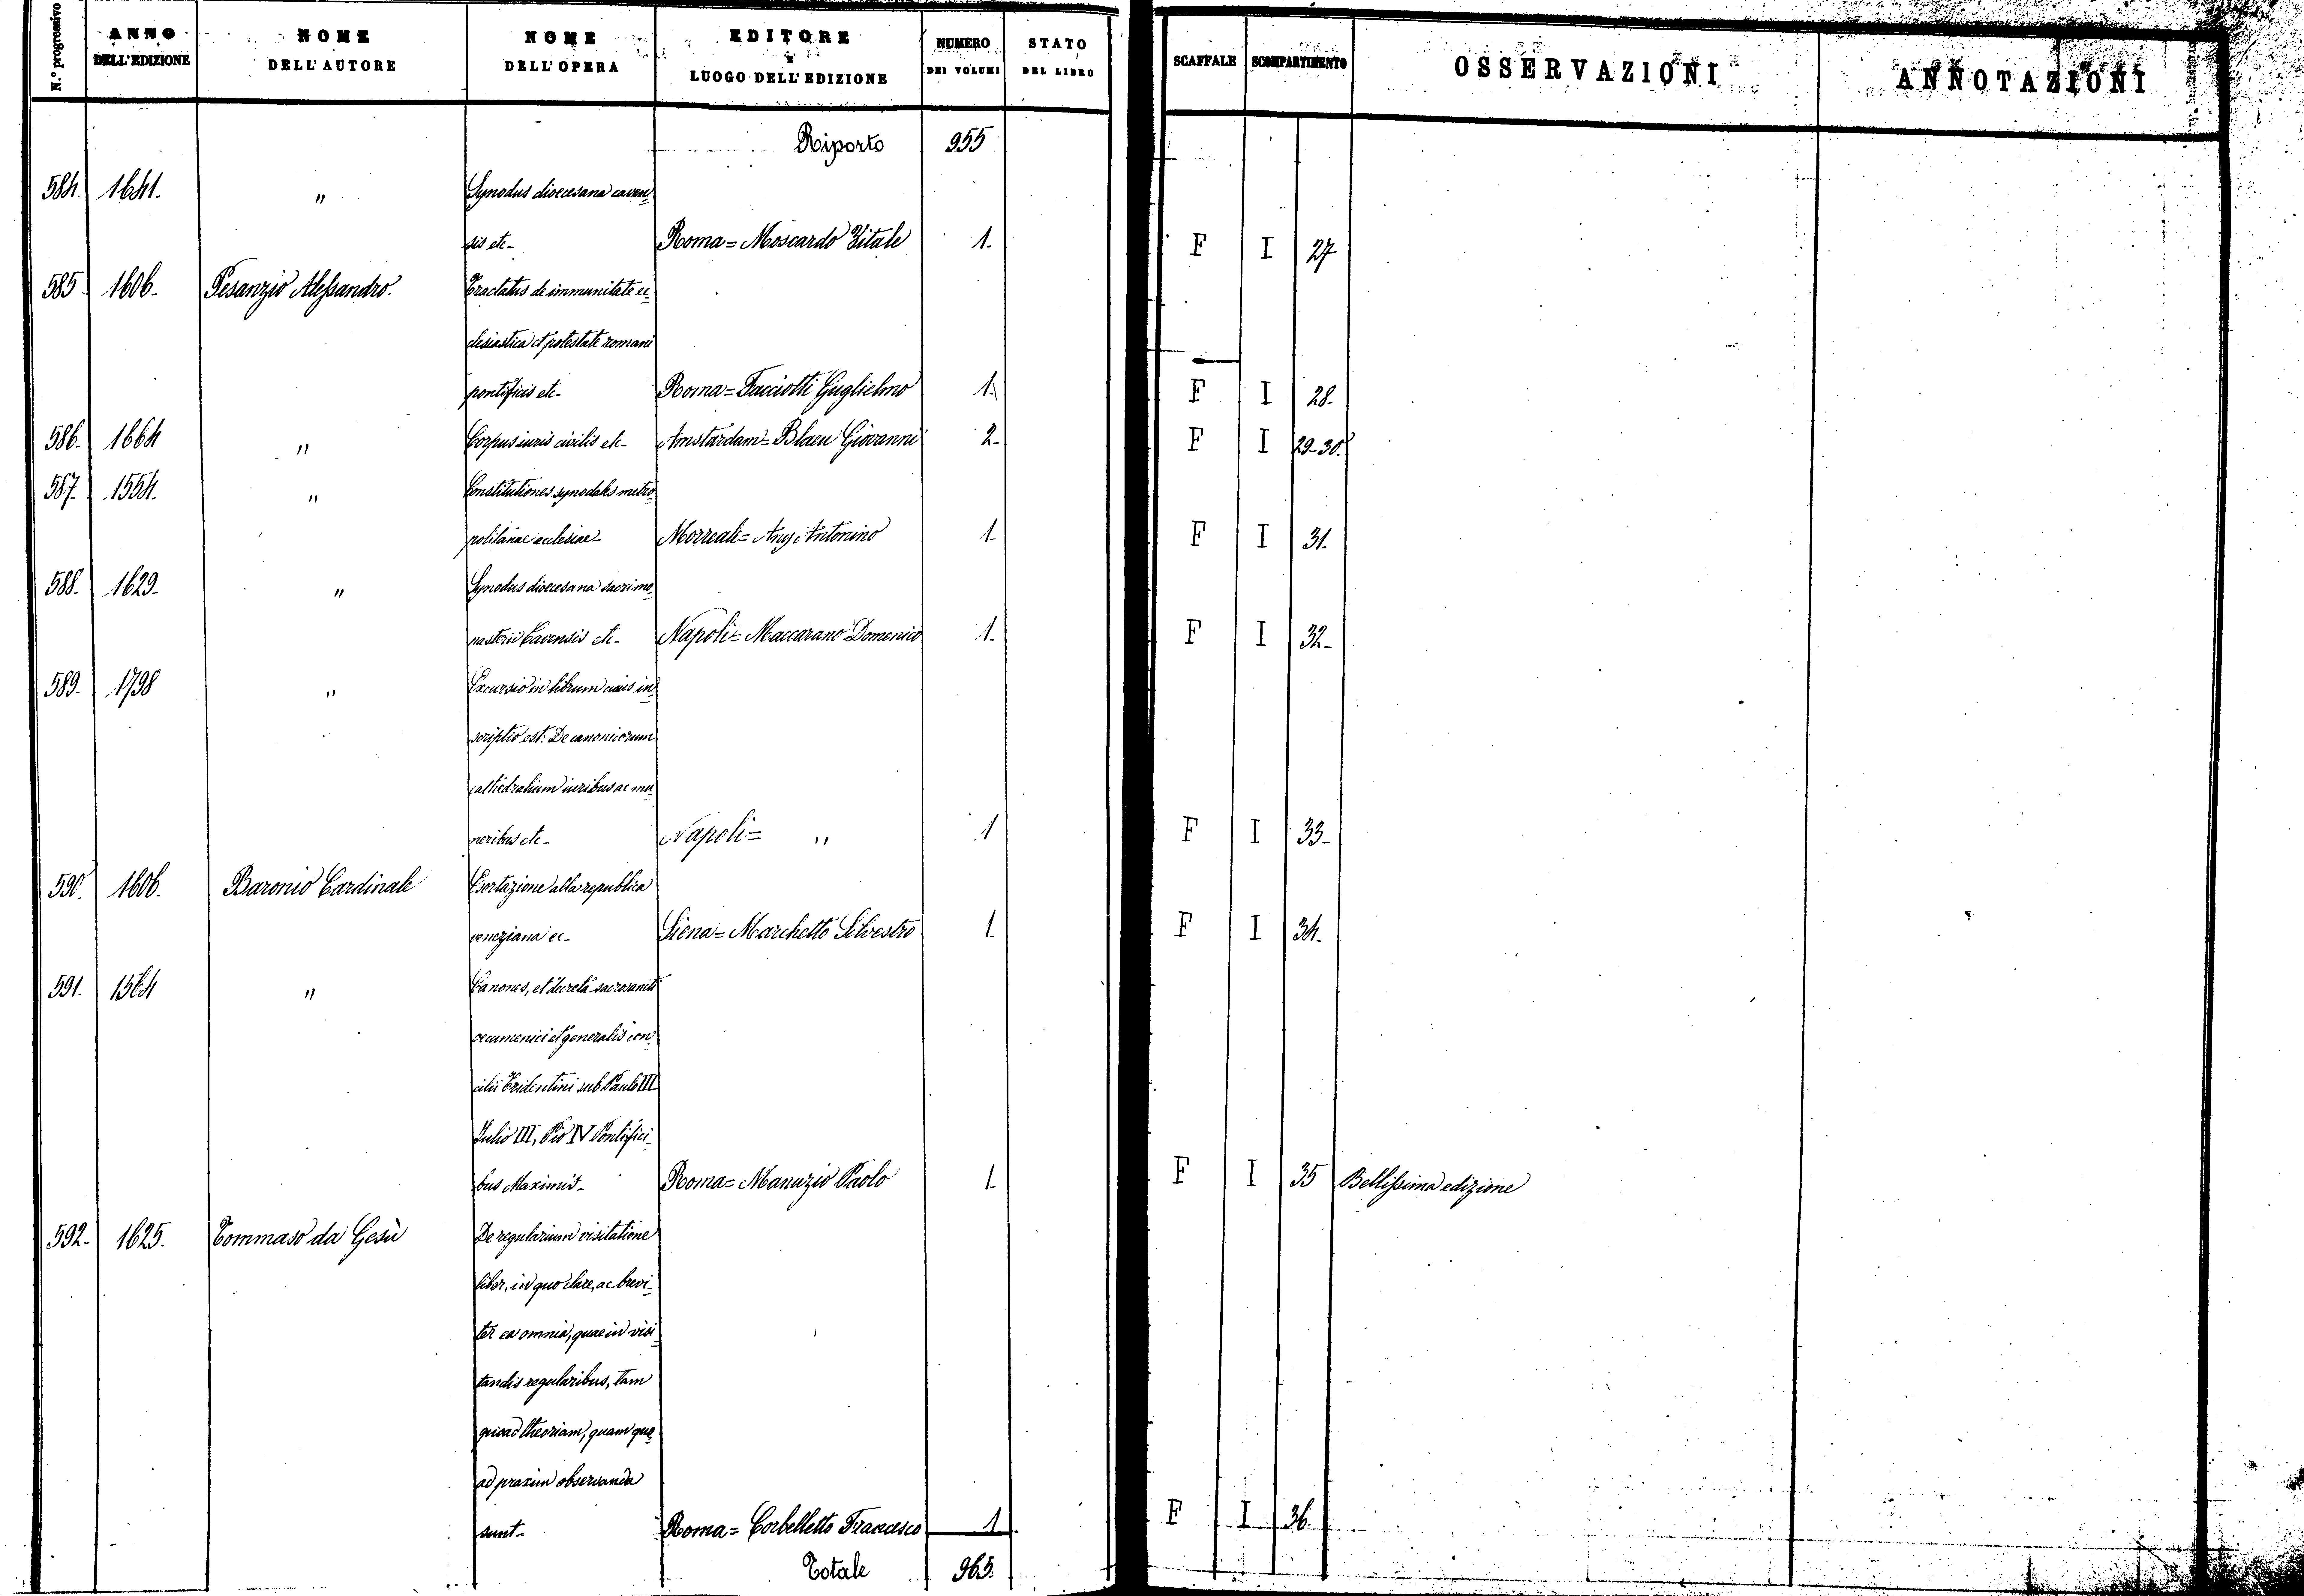 N.º progressivo | ANNO DELL'EDIZIONE | NOME DELL'AUTORE | NOME DELL'OPERA | EDITORE E LUOGO DELL'EDIZIONE | NUMERO DEI VOLUMI | STATO DEL LIBRO | SCAFFALE | SCOMPARTIMENTO | OSSERVAZIONI | ANNOTAZIONI
Riporto 955
584. 1641. " Synodus dioecesana caven=
sis etc- Roma= Moscardo Vitale 1. F I 27
585 1606- Pesanzio Alessandro. Tractatus de immunitate ec=
clesiastica et potestate romani
pontificis etc- Roma= Facciotti Guglielmo 1. F I 28-
586- 1664 " Corpus iuris civilis etc- Amstardam= Blaeu Giovanni 2- F I 29-30.
587. 1554. " Constitutiones synodales metro=
politanae ecclesiae- Morreale= Antonino 1- F I 31-
588- 1629- " Synodus dioecesana sacri mo=
nasterii Cavensis etc- Napoli= Maccarano Domenico 1- F I 32-
589- 1798 " Excursio in librum cuius in=
scriptio est: De canonicorum
cathedralium iuribus ac mu=
neribus etc- Napoli= " 1 F I 33-
590. 1606- Baronio Cardinale Esortazione alla republica
veneziana ec- Siena= Marchetto Silvestro 1. F I 34-
591. 1564 " Canones, et decreta sacrosancti
oecumenici et generalis con=
cilii Tridentini sub Paulo III
Julio III, Pio IV Pontifici=
bus Maximis- Roma= Manuzio Paolo 1- F I 35 Bellissima edizione
592- 1625. Tommaso da Gesù De regularium visitatione
liber, in quo clare, ac brevi=
ter ea omnia, quae in visi=
tandis regularibus, tam
quoad theoriam, quam quo=
ad praxim observanda
sunt- Roma= Corbelletto Francesco 1 F I 36.
Totale 965.